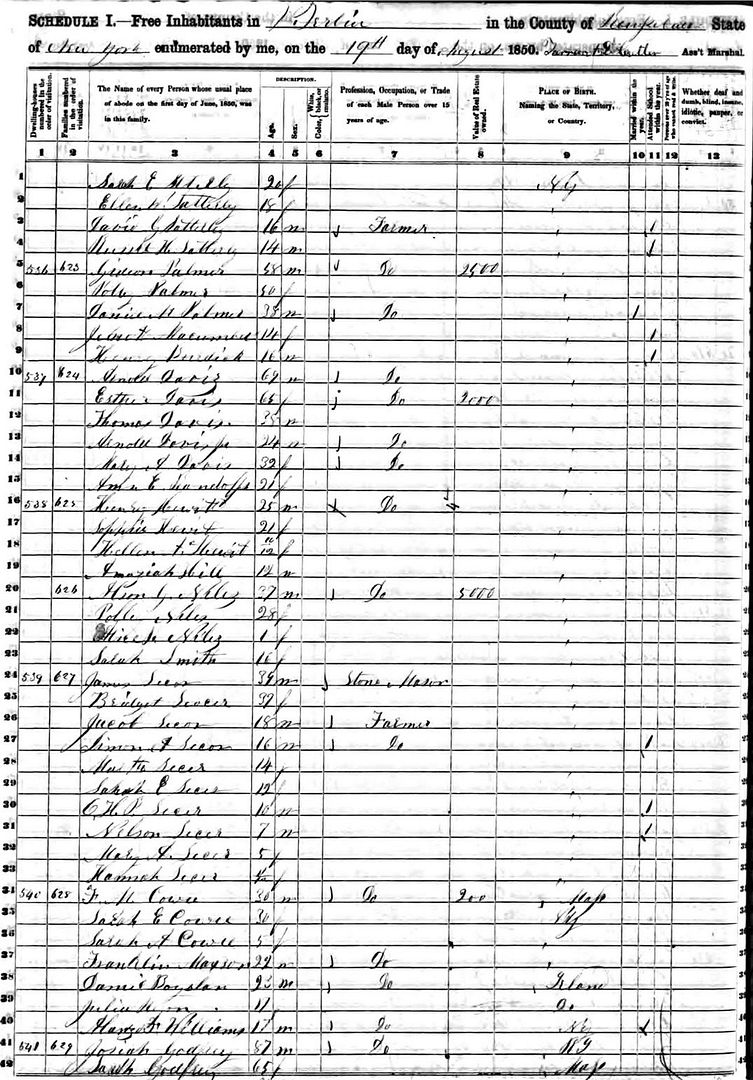 SCHEDULE I.—Free Inhabitants in Berlin in the County of Rensselaer State
of New York enumerated by me, on the 19th day of August 1850. Ass't Marshal.
Dwelling-houses numbered in the order of visitation.
Families numbered in the order of visitation.
The Name of every Person whose usual place of abode on the first day of June, 1850, was in this family.
DESCRIPTION.
Age.
Sex.
Color, White, black, or mulatto.
Profession, Occupation, or Trade of each Male Person over 15 years of age.
Value of Real Estate owned.
PLACE OF BIRTH. Naming the State, Territory, or Country.
Married within the year.
Attended School within the year.
Persons over 20 y'rs of age who cannot read & write.
Whether deaf and dumb, blind, insane, idiotic, pauper, or convict.
1 2 3 4 5 6 7 8 9 10 11 12 13
1 Sarah E 20 f NY
2 Ellen Satterly 18 f
3 David G Satterly 16 m Farmer 1
4 H Satterly 14 m 1
5 536 623 Gideon Palmer 58 m Do 2500
6 Polly Palmer 50 f
7 M Palmer m Do 1
8 14 f 1
9 Henry Burdick 16 m 1
10 537 624 Arnold Davis 69 m Do
11 Esther Davis 65 f Do 2000
12 Thomas Davis 35 m
13 Arnold Davis jr 24 m Do
14 Mary A Davis 32 f Do
15 E 21 f
16 538 625 Henry Hewit 25 m Do
17 Sophia Hewit 21 f
18 Hellen A Hewit f
19 Amaziah Hill 12 m
20 626 Niles 37 m Do 5000
21 Polly Niles 28 f
22 Niles 1 f
23 Sarah Smith 16 f
24 539 627 James Secor 39 m Stone Mason
25 Bridget Secor 39 f
26 Jacob Secor 18 m Farmer
27 Simon A Secor 16 m Do 1
28 Martha Secor 14 f
29 Sarah E Secor 12 f
30 O.H.P. Secor 10 m 1
31 Nelson Secor 7 m 1
32 Mary A. Secor 5 f
33 Hannah Secor f
34 540 628 F. M Cowee 30 m Do 200 Mass
35 Sarah E Cowee 30 f NY
36 Sarah A Cowee 5 f
37 Franklin Maxson 22 m Do
38 Boyslan 23 m Do Irland
39 Julia 11 Do
40 Williams 17 m Do NY
41 541 629 Josiah Godfrey 87 m Do NY
42 Sarah Godfrey 65 f Mass